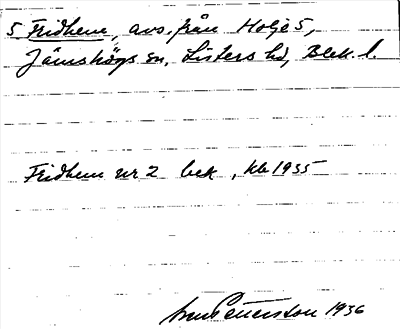 5 Fridhem, avs. från Holje 5,
Jämshögs sn, Listers hd, Blek. l.
Fridhem nr 2 bek, kb 1935
Pettersson 1936